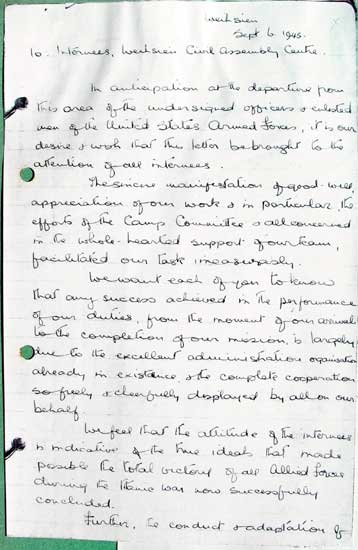 Weihsien
Sept 6. 1945.
To. Internees, Weihsien Civil Assembly Centre.
In anticipation at the departure from
this area of the undersigned officers & enlisted
men of the United States Armed Forces, it is our
desire & wish that this letter be brought to the
attention of all internees.
The sincere manifestation of good-will
appreciation of our work & in particular the
efforts of the Camp Committee & all concerned
in the whole-hearted support of our team,
facilitated our task immeasurably.
We want each of you to know
that any success achieved in the performance
of our duties, from the moment of our arrival
to the completion of our mission, is largely
due to the excellent administration organisation
already in existence & the complete cooperation
so freely & cheerfully displayed by all on our
behalf.
We feel that the attitude of the internees
is indicative of the true ideals that made
possible the total victory of all Allied Forces
during the titanic war now successfully
concluded.
Further, the conduct & adaptation of